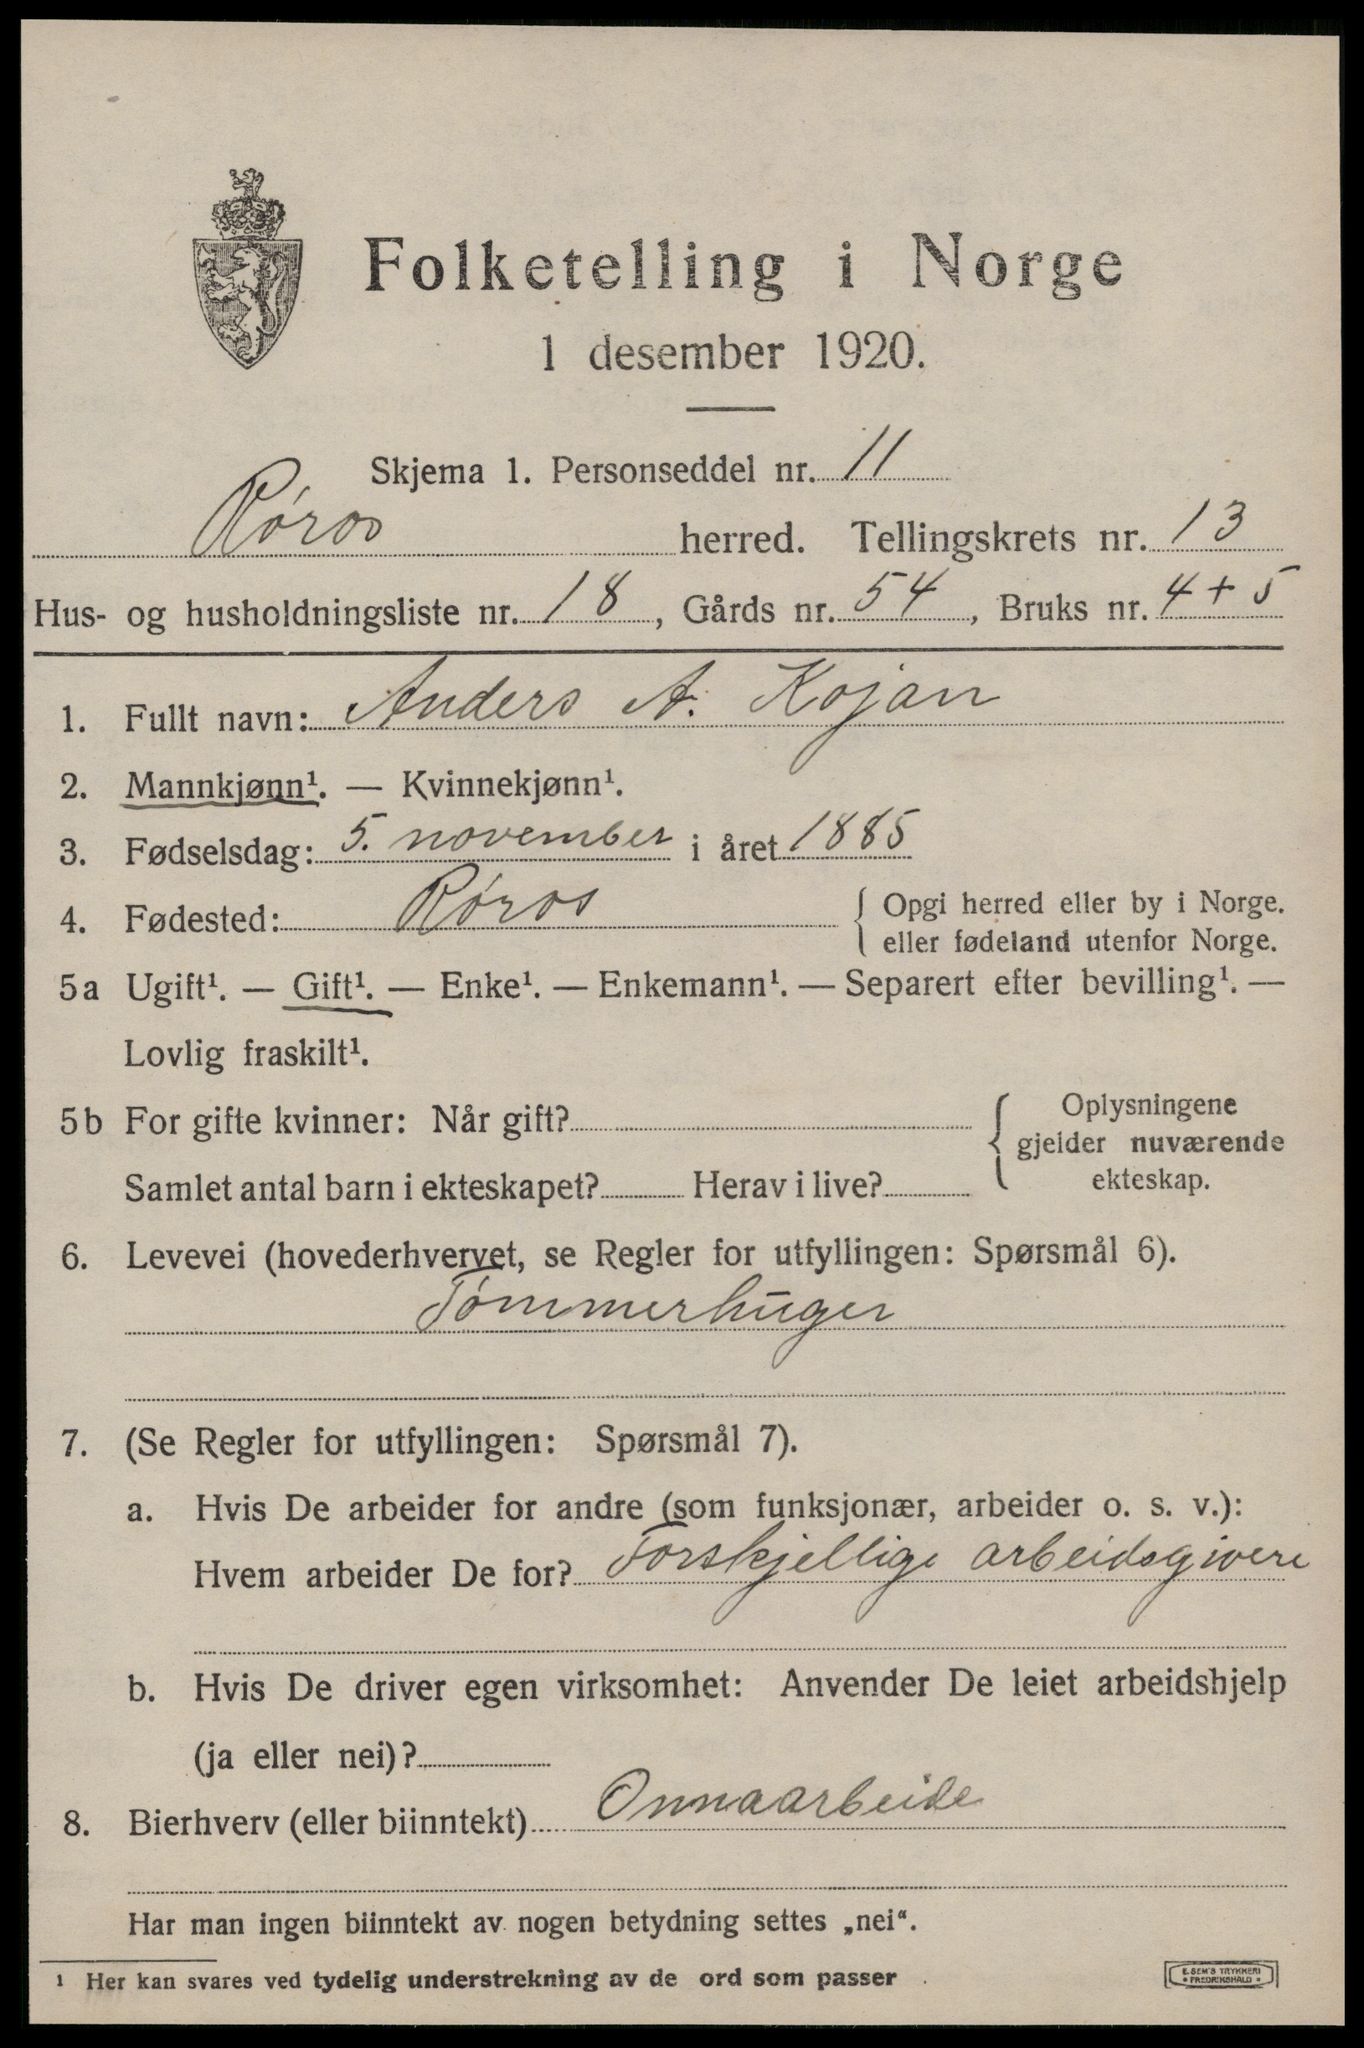 Folketelling i Norge
1 desember 1920.
Skjema 1. Personseddel nr. 11
Røros herred. Tellingskrets nr. 13
Hus- og husholdningsliste nr. 18, Gårds nr. 54, Bruks nr. 4 + 5
1. Fullt navn: Anders A. Kojan
2. Mannkjønn¹. — Kvinnekjønn¹.
3. Fødselsdag: 5. november i året 1885
4. Fødested: Røros { Opgi herred eller by i Norge.
eller fødeland utenfor Norge.
5a Ugift¹. — Gift¹. — Enke¹. — Enkemann¹. — Separert efter bevilling¹. —
Lovlig fraskilt¹.
5b For gifte kvinner: Når gift?
Samlet antal barn i ekteskapet? Herav i live?
{ Oplysningene
gjelder nuværende
ekteskap.
6. Levevei (hovederhvervet, se Regler for utfyllingen: Spørsmål 6).
Tømmerhuger
7. (Se Regler for utfyllingen: Spørsmål 7).
a. Hvis De arbeider for andre (som funksjonær, arbeider o. s. v.):
Hvem arbeider De for? Forskjellige arbeidsgivere
b. Hvis De driver egen virksomhet: Anvender De leiet arbeidshjelp
(ja eller nei)?
8. Bierhverv (eller biinntekt) Onnaarbeide
Har man ingen biinntekt av nogen betydning settes „nei“.
¹ Her kan svares ved tydelig understrekning av de ord som passer
E. SEM'S TRYKKERI
FREDRIKSHALD